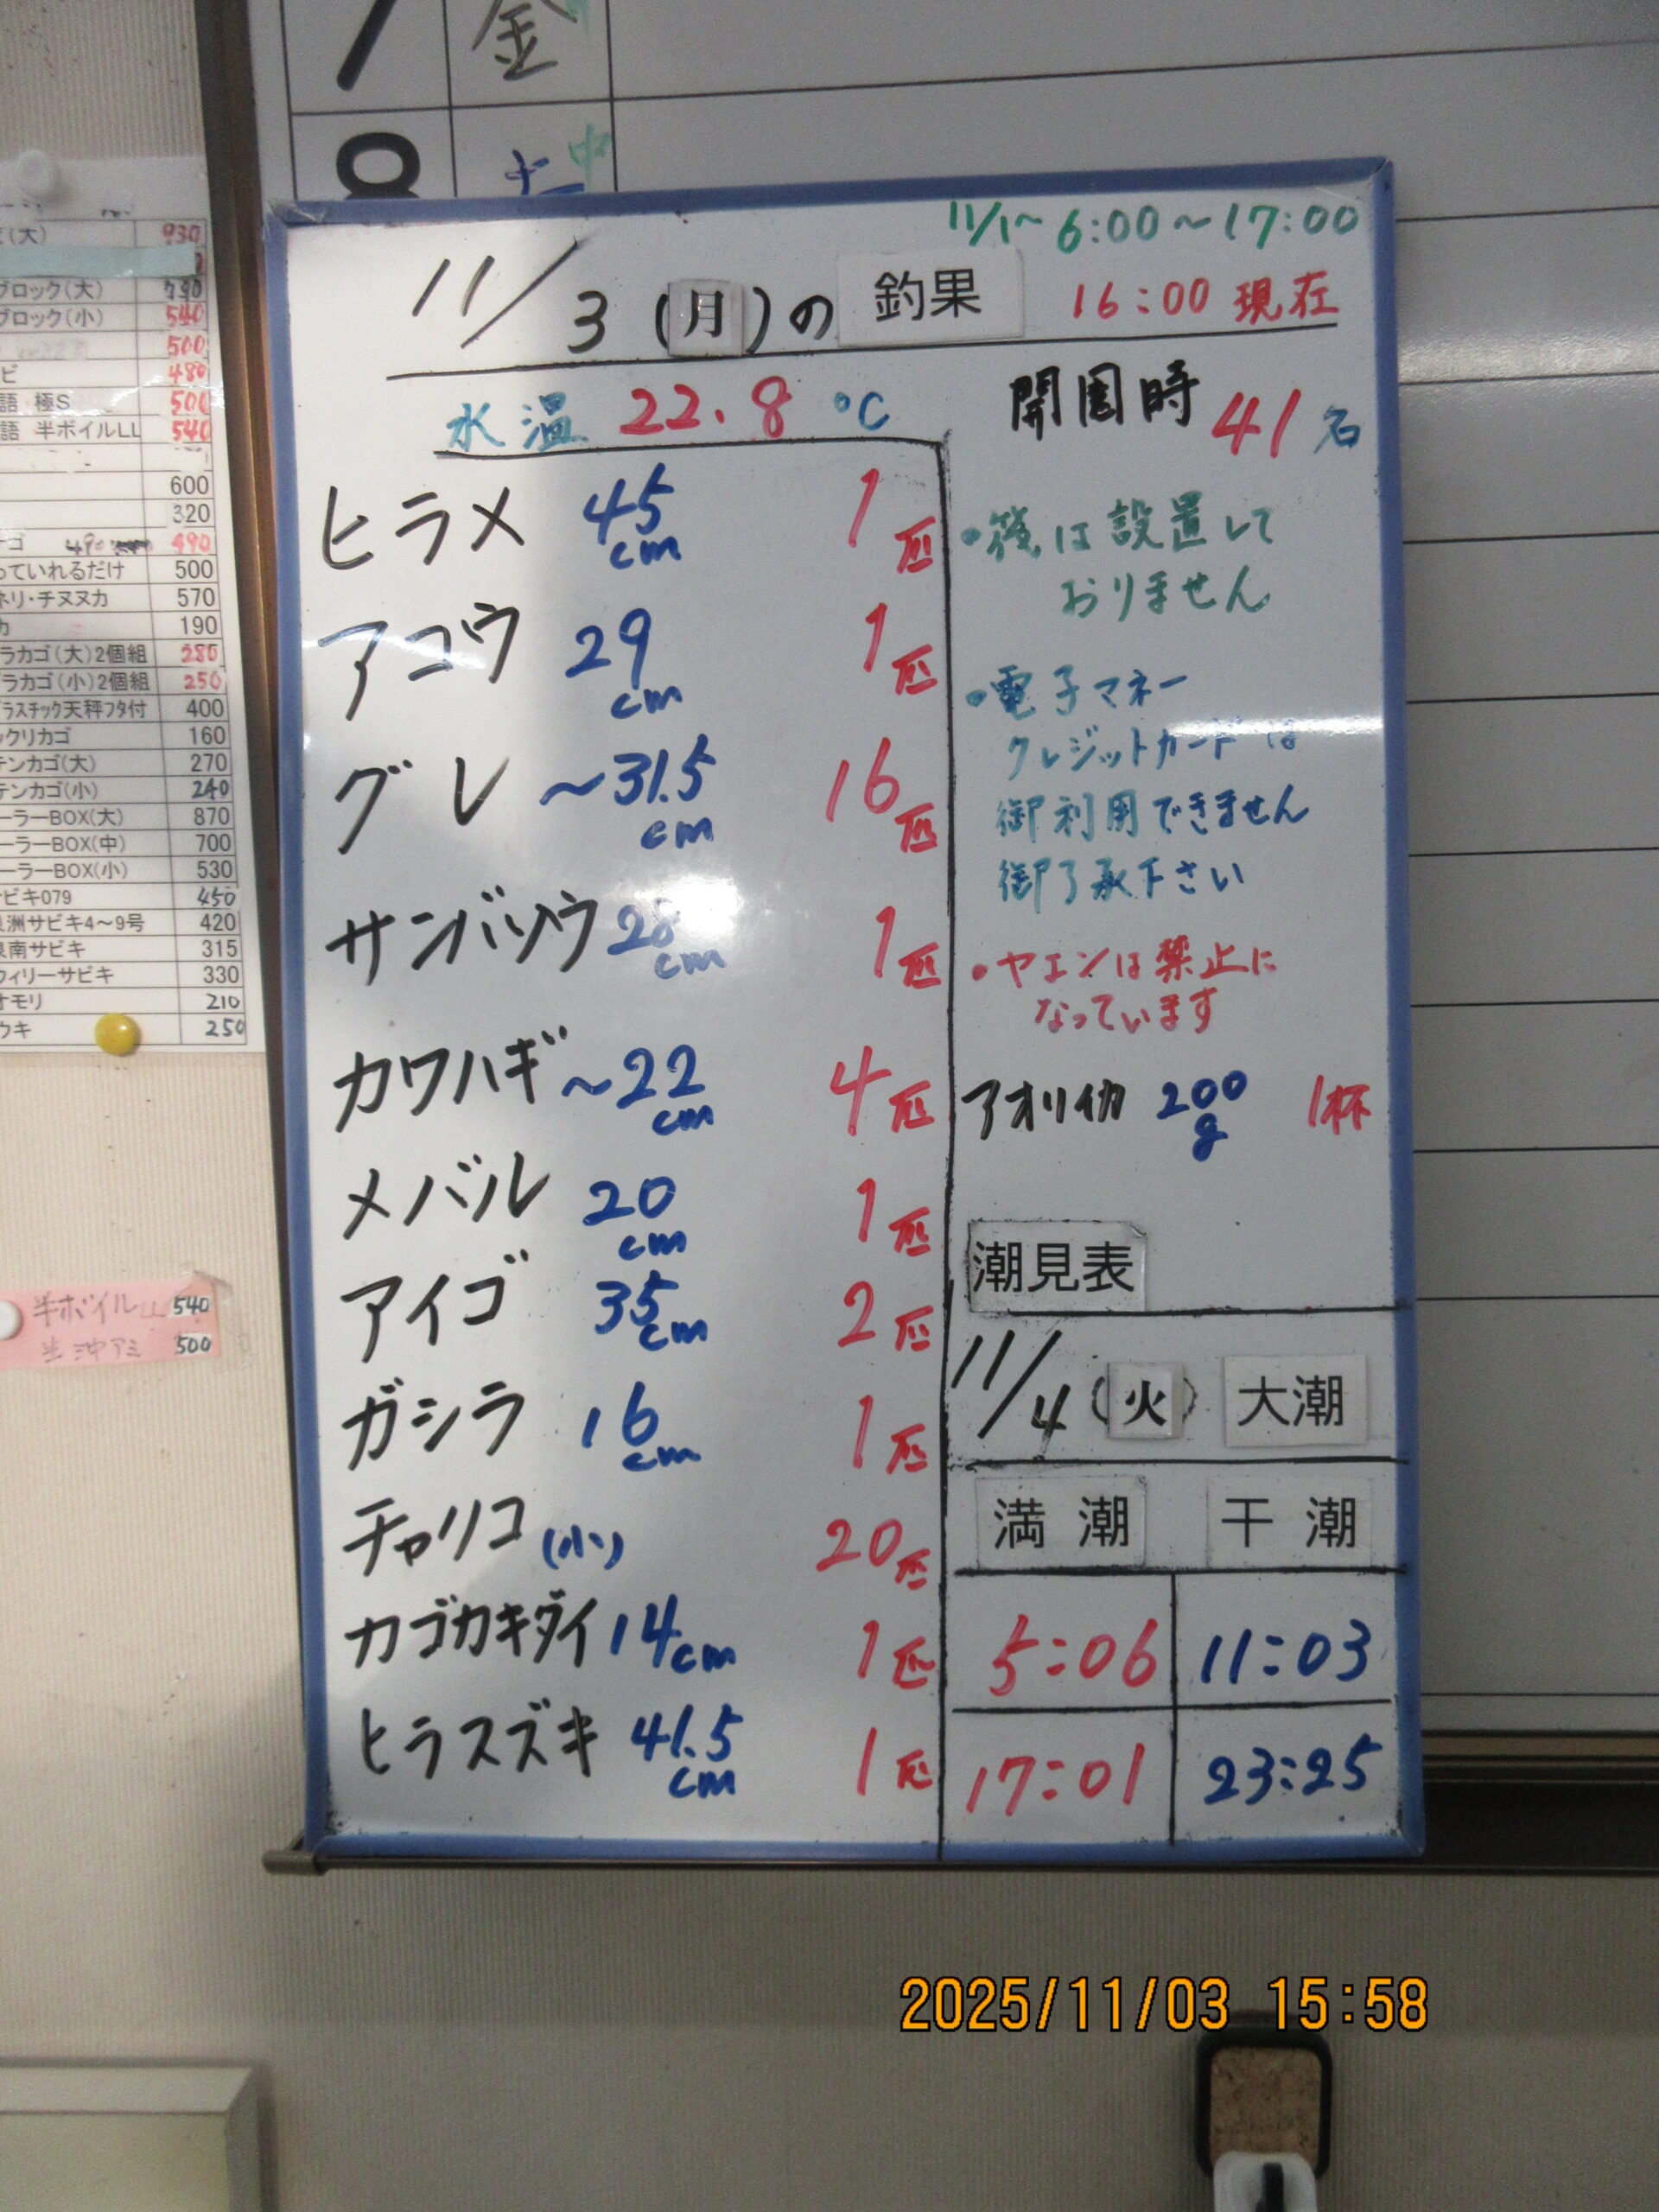 金
8
土 中
11/1～ 6:00～17:00
11/3 (月)の 釣果 16:00 現在
水温 22.8 ℃
開園時 41名
ヒラメ 45cm 1匹
アコウ 29cm 1匹
グレ ～31.5cm 16匹
サンバソウ 28cm 1匹
カワハギ ～22cm 4匹
メバル 20cm 1匹
アイゴ 35cm 2匹
ガシラ 16cm 1匹
チャリコ (小) 20匹
カゴカキダイ 14cm 1匹
ヒラスズキ 41.5cm 1匹
・筏は設置して
おりません
・電子マネー
クレジットカードは
御利用できません
御了承下さい
・ヤエンは禁止に
なっています
アオリイカ 200g 1杯
潮見表
11/4 (火) 大潮
満潮 干潮
5:06 11:03
17:01 23:25
(大) 930
ブロック(大)
ブロック(小) 540
500
ビ 480
語 極S 500
語 半ボイルLL 540
600
320
ゴ 490
っていれるだけ 500
ネリ・チヌヌカ 570
カ 190
ラカゴ(大)2個組 280
ラカゴ(小)2個組 250
ラスチック天秤フタ付 400
ックリカゴ 160
テンカゴ(大) 270
テンカゴ(小) 240
ーラーBOX(大) 870
ーラーBOX(中) 700
ーラーBOX(小) 530
ビキ079 450
洲サビキ4～9号 420
泉南サビキ 315
ウィリーサビキ 330
オモリ 210
ウキ 250
半ボイルLL 540
生沖アミ 500
2025/11/03 15:58